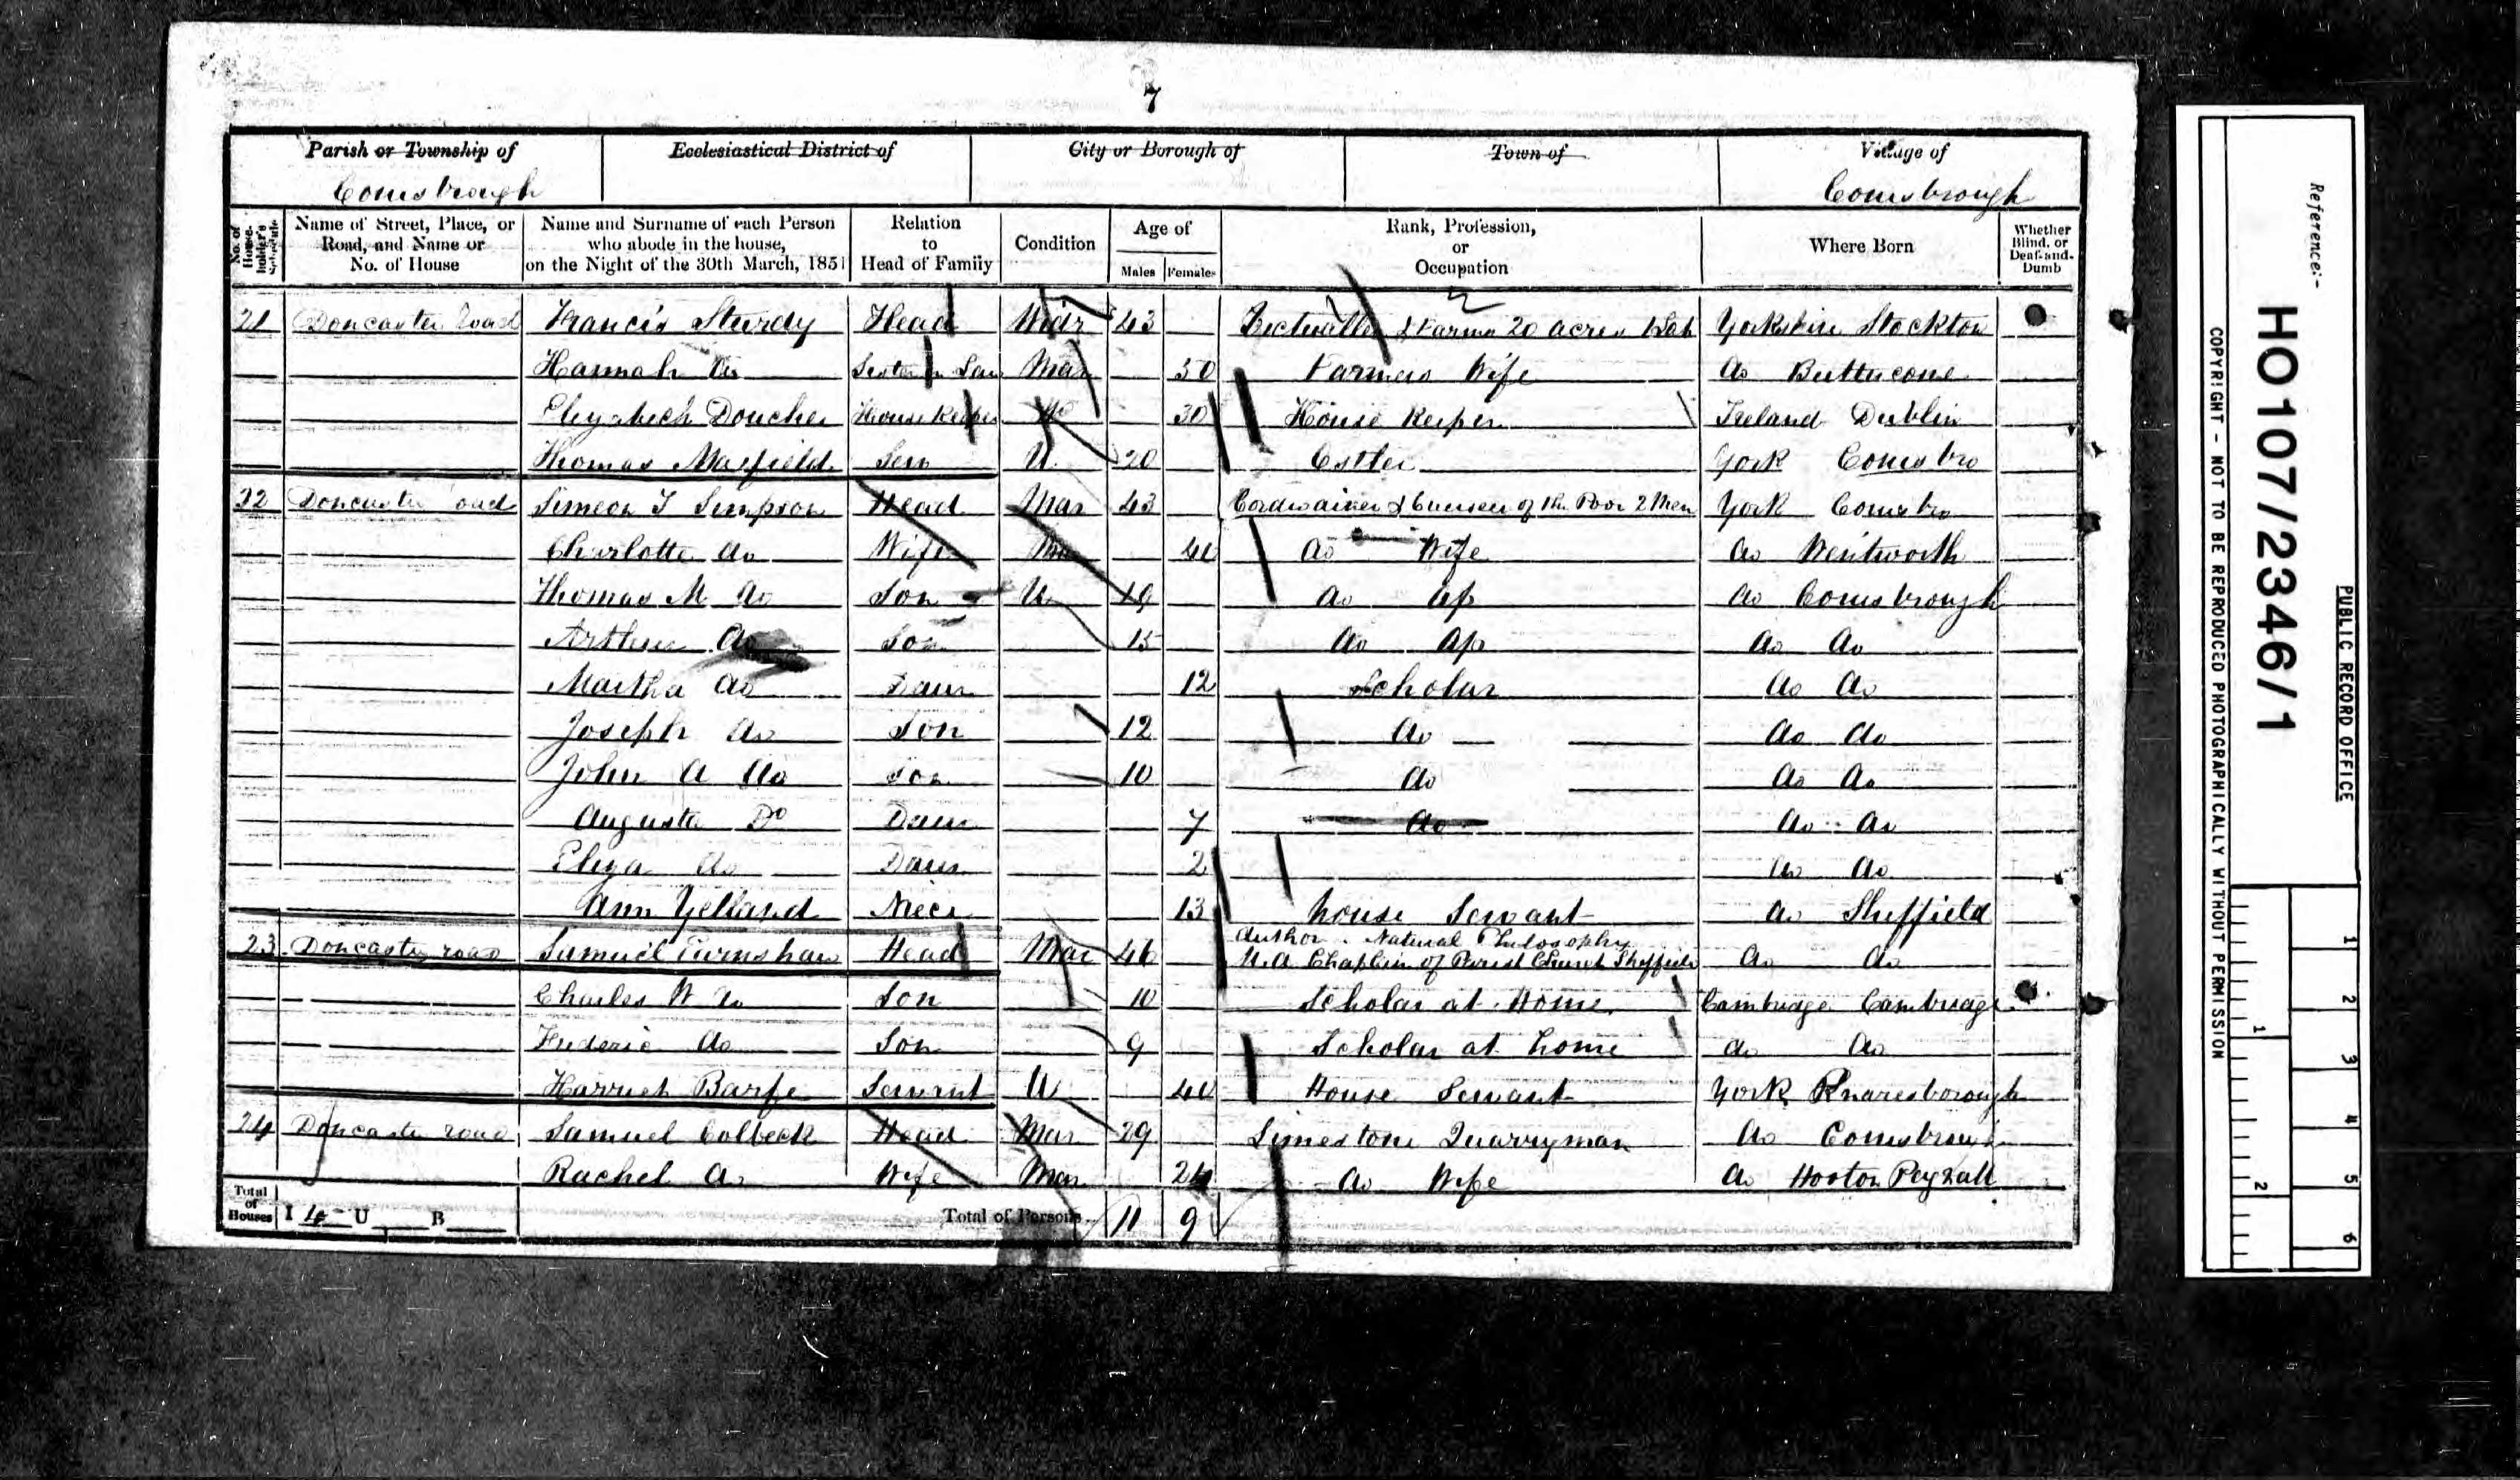 7
Parish or Township of Ecclesiastical District of City or Borough of Town of Village of
Conisbrough Conisbrough
No. of House-holder's Schedule Name of Street, Place, or Road, and Name or No. of House Name and Surname of each Person who abode in the house, on the Night of the 30th March, 1851 Relation to Head of Family Condition Age of Males Females Rank, Profession, or Occupation Where Born Whether Blind, or Deaf-and-Dumb
21 Doncaster Road Francis Sturdy Head Widr 43 Victualler & Farmer 20 acres Yorkshire Stockton
Hannah Do Sister in Law Mar 30 Farmers Wife do
Elizabeth Doucher House Keeper 30 House Keeper Ireland Dublin
Thomas Masfield Serv U 20 Ostler York Conisbro
22 Doncaster road Simeon T Simpson Head Mar 43 Cordwainer & Overseer of the Poor 2 Men York Conisbro
Charlotte do Wife Mar do Wife do Wentworth
Thomas M do Son U 19 do ap do Conisbrough
Arthur do Son 15 do ap do do
Martha do Daur 12 Scholar do do
Joseph do Son 12 do do do
John A do Son 10 do do do
Augusta Do Daur 7 do do do
Eliza do Daur 2 do do
Ann Yelland Niece 13 house Servant do Sheffield
23 Doncaster road Samuel Earnshaw Head Mar 46 Author. Natural Philosophy
M.A Chaplin of Parish Church Sheffield do do
Charles W Do Son 10 Scholar at Home Cambridge Cambridge
Frederic do Son 9 Scholar at home do do
Harriet Barfe Servant U House Servant York Knaresborough
24 Doncaster road Samuel Colbeck Head Mar 29 Limestone Quarryman do Conisbrough
Rachel do Wife Mar 24 do Wife do Hooton Pegnall
Total of Houses I 4 U B Total of Persons 11 9
Reference:-
HO107/2346/1
PUBLIC RECORD OFFICE
COPYRIGHT - NOT TO BE REPRODUCED PHOTOGRAPHICALLY WITHOUT PERMISSION
1
2
1
2
3
4
5
6